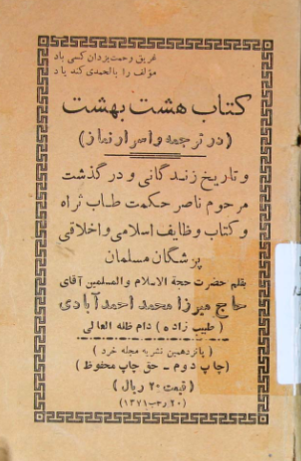 غریق رحمت یزدان کسی باد
مؤلف را بالحمدی کند یاد
کتاب هشت بهشت
(در ترجمه و اسرار نماز)
و تاریخ زندگانی و درگذشت
مرحوم ناصر حکمت طاب ثراه
و کتاب وظایف اسلامی و اخلاقی
پزشگان مسلمان
بقلم حضرت حجة الاسلام والمسلمین آقای
حاج میرزا محمد احمدآبادی
(طبیب زاده) دام ظله العالی
(پانزدهمین نشریه مجله خرد)
(چاپ دوم - حق چاپ محفوظ)
(قیمت ۲۰ ریال)
(۲۰ رجب ۱۳۷۱)